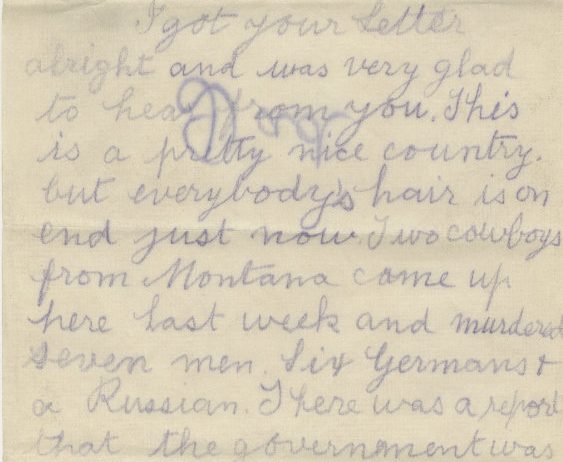 I got your letter
alright and was very glad
to hear from you. This
is a pretty nice country.
but everybody's hair is on
end just now. Two cowboys
from Montana came up
here last week and murdered
seven men. Six Germans &
a Russian. There was a report
that the government was